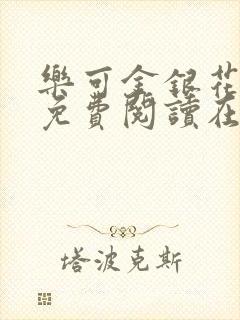 樂可金銀花
免費閱讀在
塔波克斯